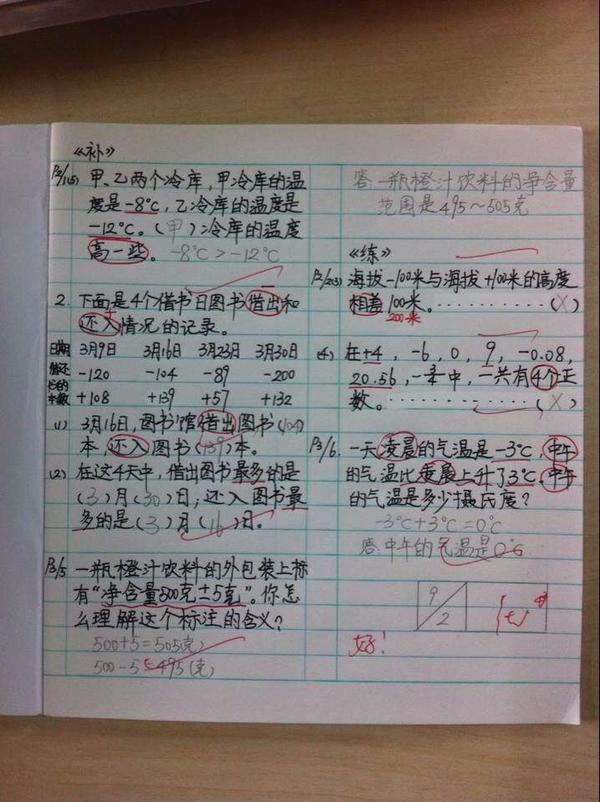 《补》
P2/1(5) 甲、乙两个冷库,甲冷库的温
度是-8℃,乙冷库的温度是
-12℃。(甲)冷库的温度
高一些。-8℃>-12℃
2. 下面是4个借书日图书借出和
还入情况的记录。
日期 3月9日 3月16日 3月23日 3月30日
借还 -120 -104 -89 -200
本数 +108 +139 +57 +132
(1) 3月16日,图书馆借出图书(104)
本,还入图书(139)本。
(2) 在这4天中,借出图书最多的是
(3)月(30)日;还入图书最
多的是(3)月(16)日。
P3/5 一瓶橙汁饮料的外包装上标
有“净含量500克±5克”。你怎
么理解这个标注的含义?
500+5=505(克)
500-5=495(克)
答:一瓶橙汁饮料的净含量
范围是495~505克
《练》
P2/2(3) 海拔-100米与海拔+100米的高度
相差100米。…………(X)
200米
(4) 在+4,-6,0,9,-0.08,
20.56,中,一共有4个正
数。…………(X)
P3/6. 一天凌晨的气温是-3℃,中午
的气温比凌晨上升了3℃,中午
的气温是多少摄氏度?
-3℃+3℃=0℃
答:中午的气温是0℃
9
2
好!